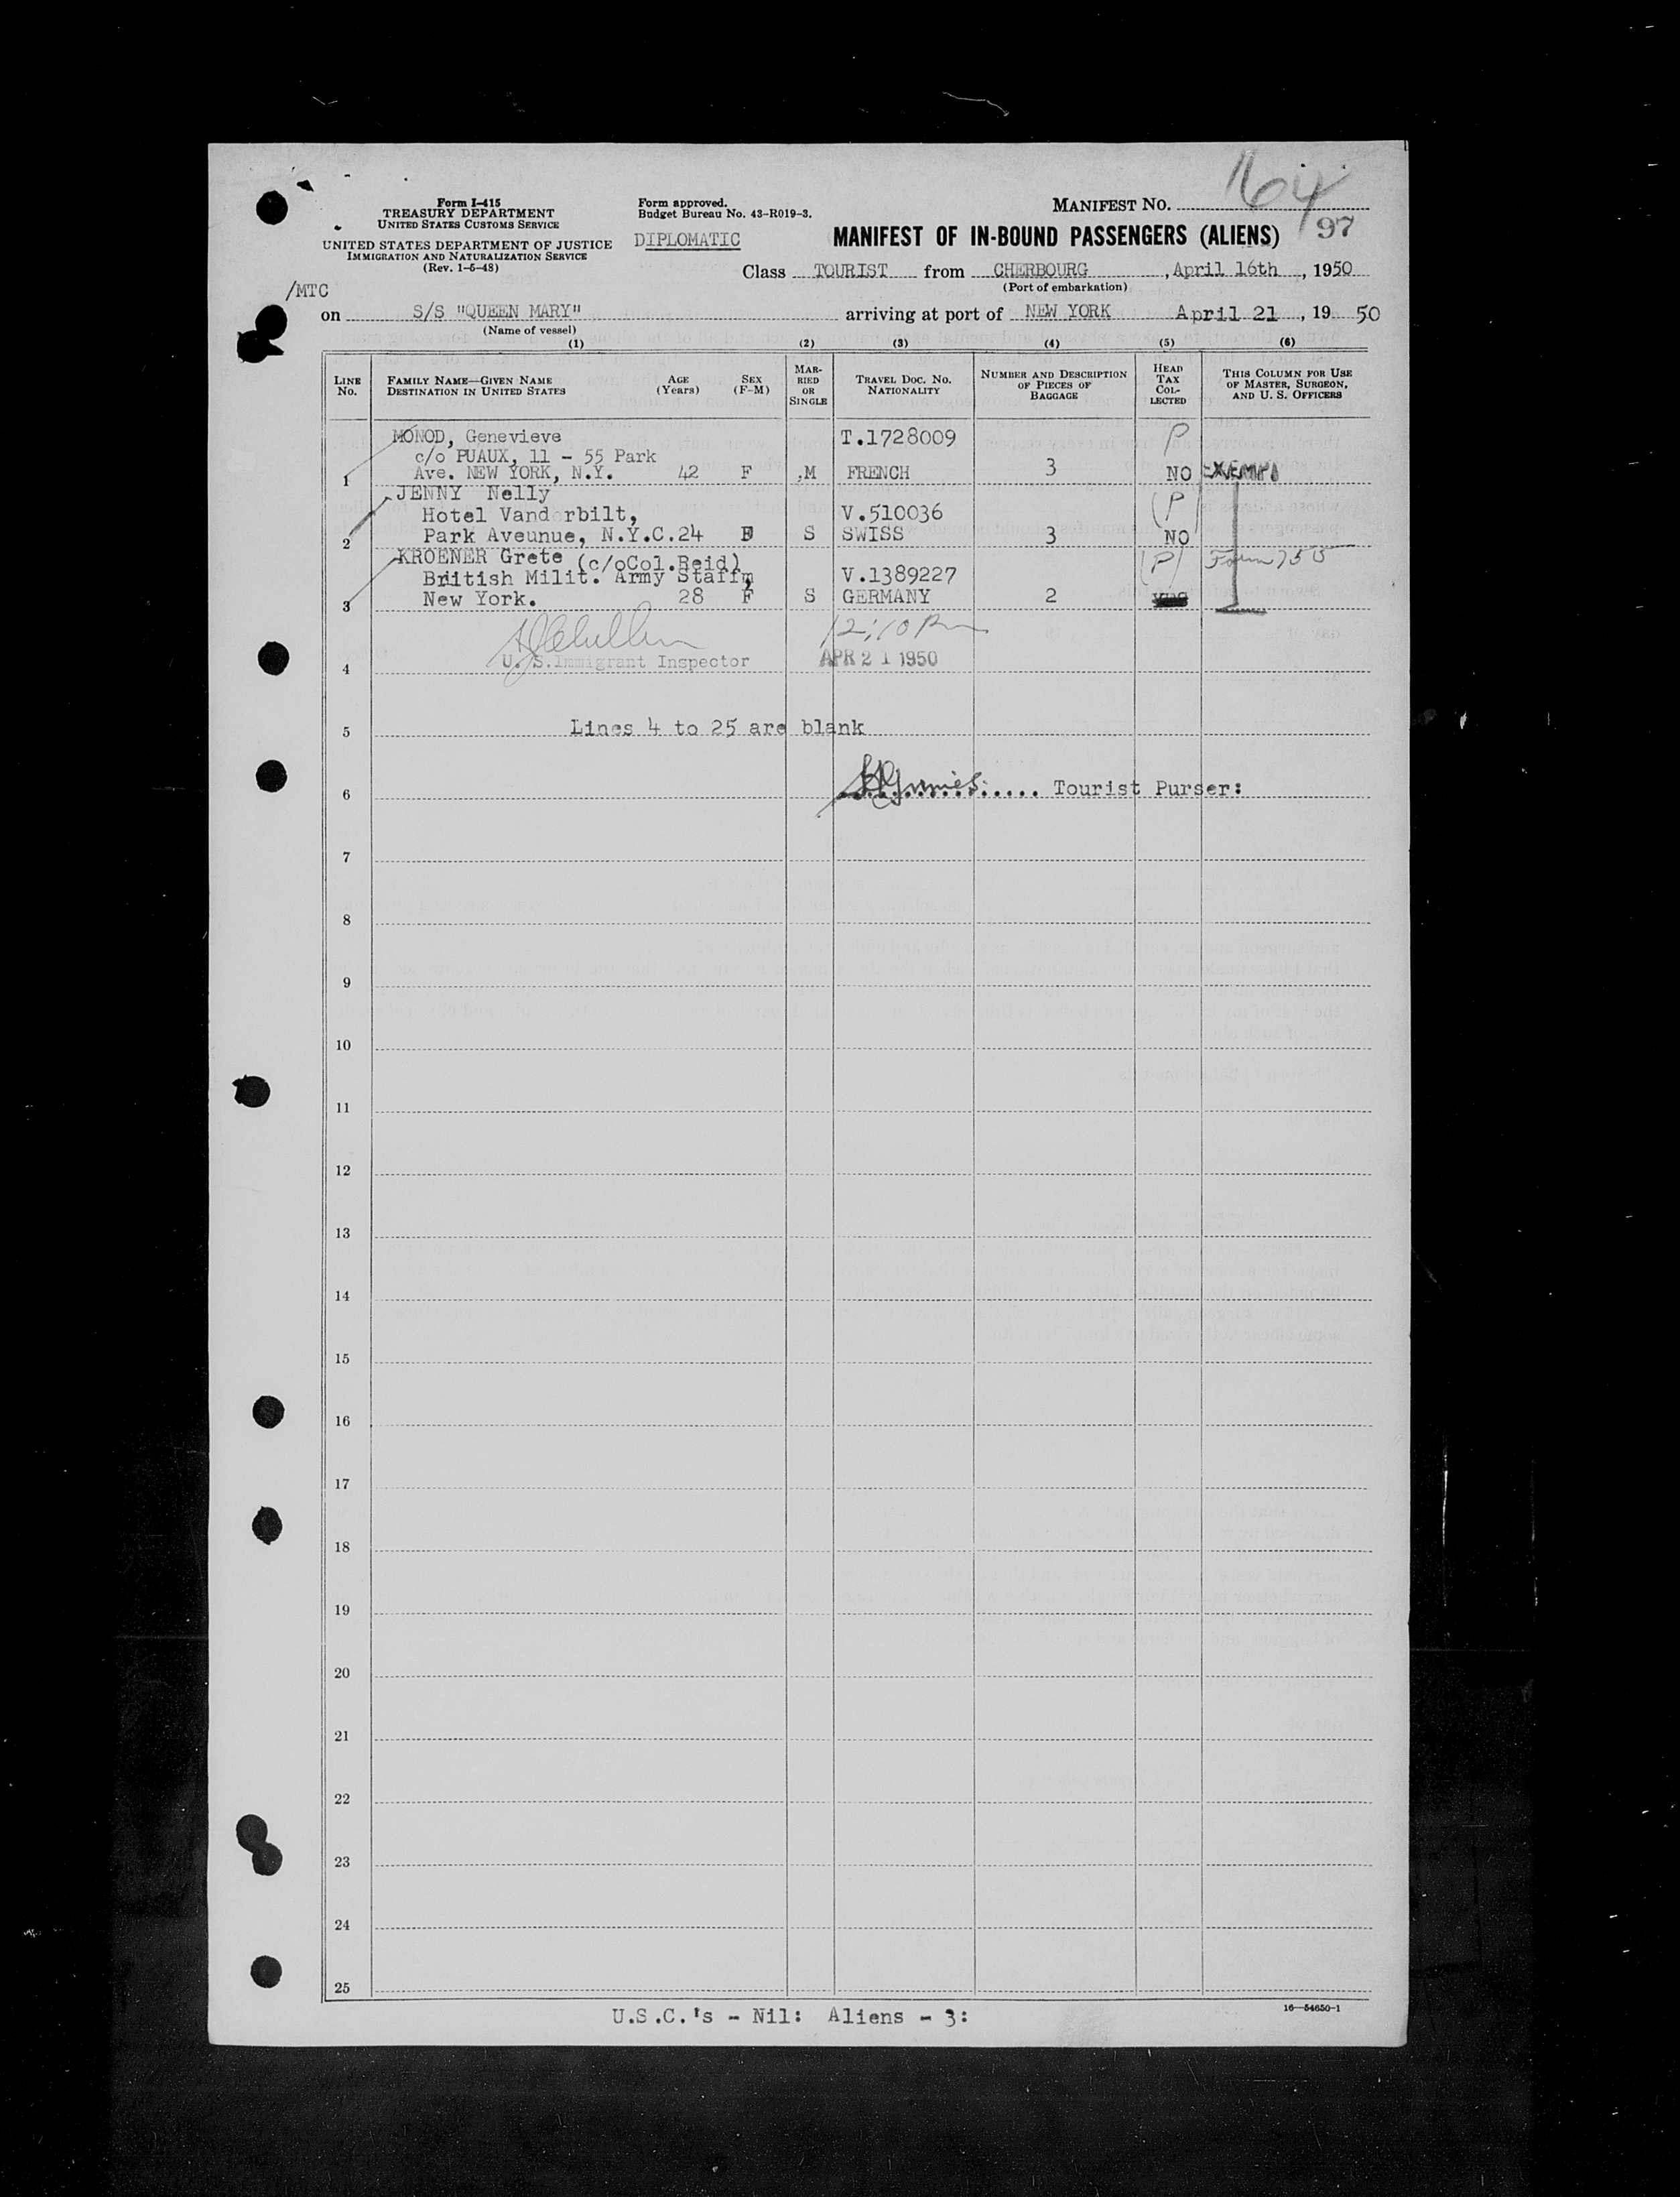 164
97
Form I-415
TREASURY DEPARTMENT
UNITED STATES CUSTOMS SERVICE
UNITED STATES DEPARTMENT OF JUSTICE
IMMIGRATION AND NATURALIZATION SERVICE
(Rev. 1-6-48)
Form approved.
Budget Bureau No. 43-R019-3.
DIPLOMATIC
MANIFEST NO.
MANIFEST OF IN-BOUND PASSENGERS (ALIENS)
Class TOURIST from CHERBOURG , April 16th , 1950
(Port of embarkation)
/MTC
on S/S "QUEEN MARY" arriving at port of NEW YORK April 21 , 19 50
(Name of vessel)
(1) (2) (3) (4) (5) (6)
LINE NO.
FAMILY NAME—GIVEN NAME
DESTINATION IN UNITED STATES
AGE (Years)
SEX (F-M)
MARRIED OR SINGLE
TRAVEL DOC. NO. NATIONALITY
NUMBER AND DESCRIPTION OF PIECES OF BAGGAGE
HEAD TAX COLLECTED
THIS COLUMN FOR USE OF MASTER, SURGEON, AND U. S. OFFICERS
MONOD, Genevieve T.1728009 P
c/o PUAUX, 11 - 55 Park
1 Ave. NEW YORK, N.Y. 42 F ,M FRENCH 3 NO EXEMPT
JENNY Nelly
Hotel Vand rbilt, V.510036 (P)
2 Park Aveunue, N.Y.C.24 F S SWISS 3 NO
KROENER Grete (c/oCol.Reid) (P)
British Milit. Army Staff, V.1389227
3 New York. 28 F S GERMANY 2
12:10 Pm
U. S. Immigrant Inspector APR 21 1950
4
Lines 4 to 25 are blank
5
6 Tourist Purser:
7
8
9
10
11
12
13
14
15
16
17
18
19
20
21
22
23
24
25
U.S.C.'s - Nil: Aliens - 3:
16—54650-1